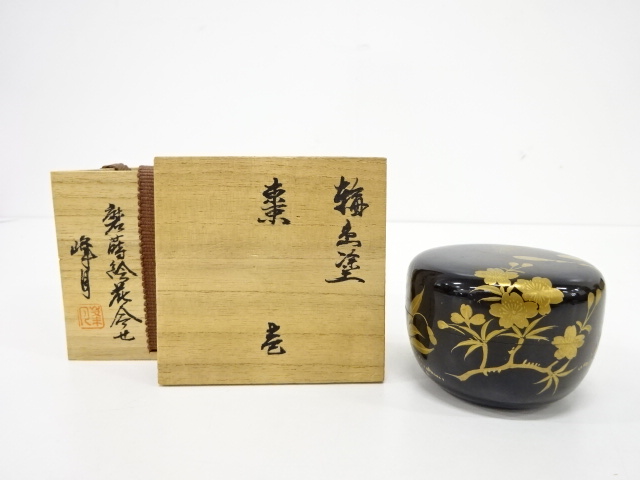 輪島塗
棗 壱
磨蒔絵花合せ
峰月